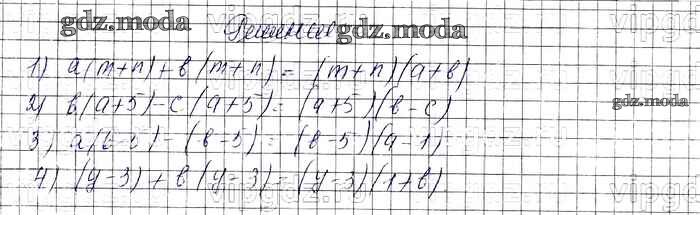 gdz.moda Решение gdz.moda
1) a(m+n)+в(m+n)=(m+n)(a+в)
2) в(a+5)-c(a+5)=(a+5)(в-c)
gdz.moda
3) a(в-5)-(в-5)=(в-5)(a-1)
4) (y-3)+в(y-3)=(y-3)(1+в)
vipgdz.ru